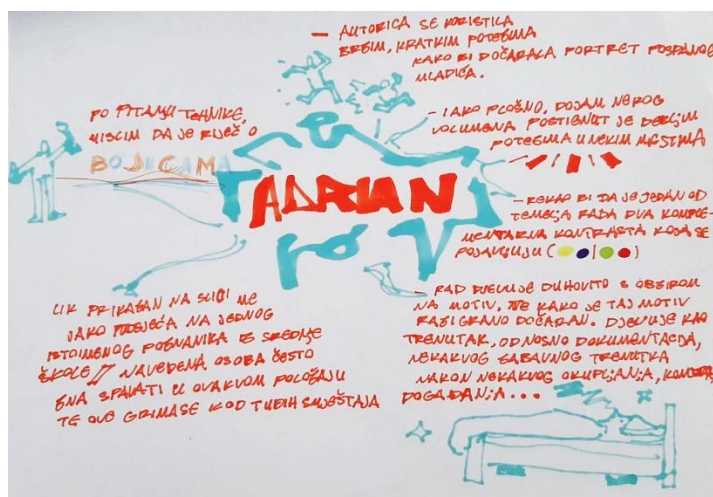 — AUTORICA SE KORISTILA
BRZIM, KRATKIM POTEZIMA
KAKO BI DOČARALA PORTRET POSPANOG
MLADIĆA.
PO PITANJU TEHNIKE,
MISLIM DA JE RIJEČ O
BOJICAMA
— IAKO PLOŠNO, DOJAM NEKOG
VOLUMENA POSTIGNUT JE DEBLJIM
POTEZIMA U NEKIM MJESTIMA
ADRIAN
— REKAO BI DA JE JEDAN OD
TEMELJA RADA DVA KOMPLE-
MENTARNA KONTRASTA KOJA SE
POJAVLJUJU ( | )
LIK PRIKAZAN NA SLICI ME
JAKO PODSJEĆA NA JEDNOG
ISTOIMENOG POZNANIKA IZ SREDNJE
ŠKOLE // NAVEDENA OSOBA ČESTO
ZNA SPAVATI U OVAKVOM POLOŽAJU
TE OVE GRIMASE KOD TUĐIH SMJEŠTAJA
— RAD DJELUJE DUHOVITO S OBZIROM
NA MOTIV, TE KAKO JE TAJ MOTIV
RAZIGRANO DOČARAN. DJELUJE KAO
TRENUTAK, ODNOSNO DOKUMENTACIJA,
NEKAKVOG ZABAVNOG TRENUTKA
NAKON NEKAKVOG OKUPLJANJA,
DOGAĐANJA...